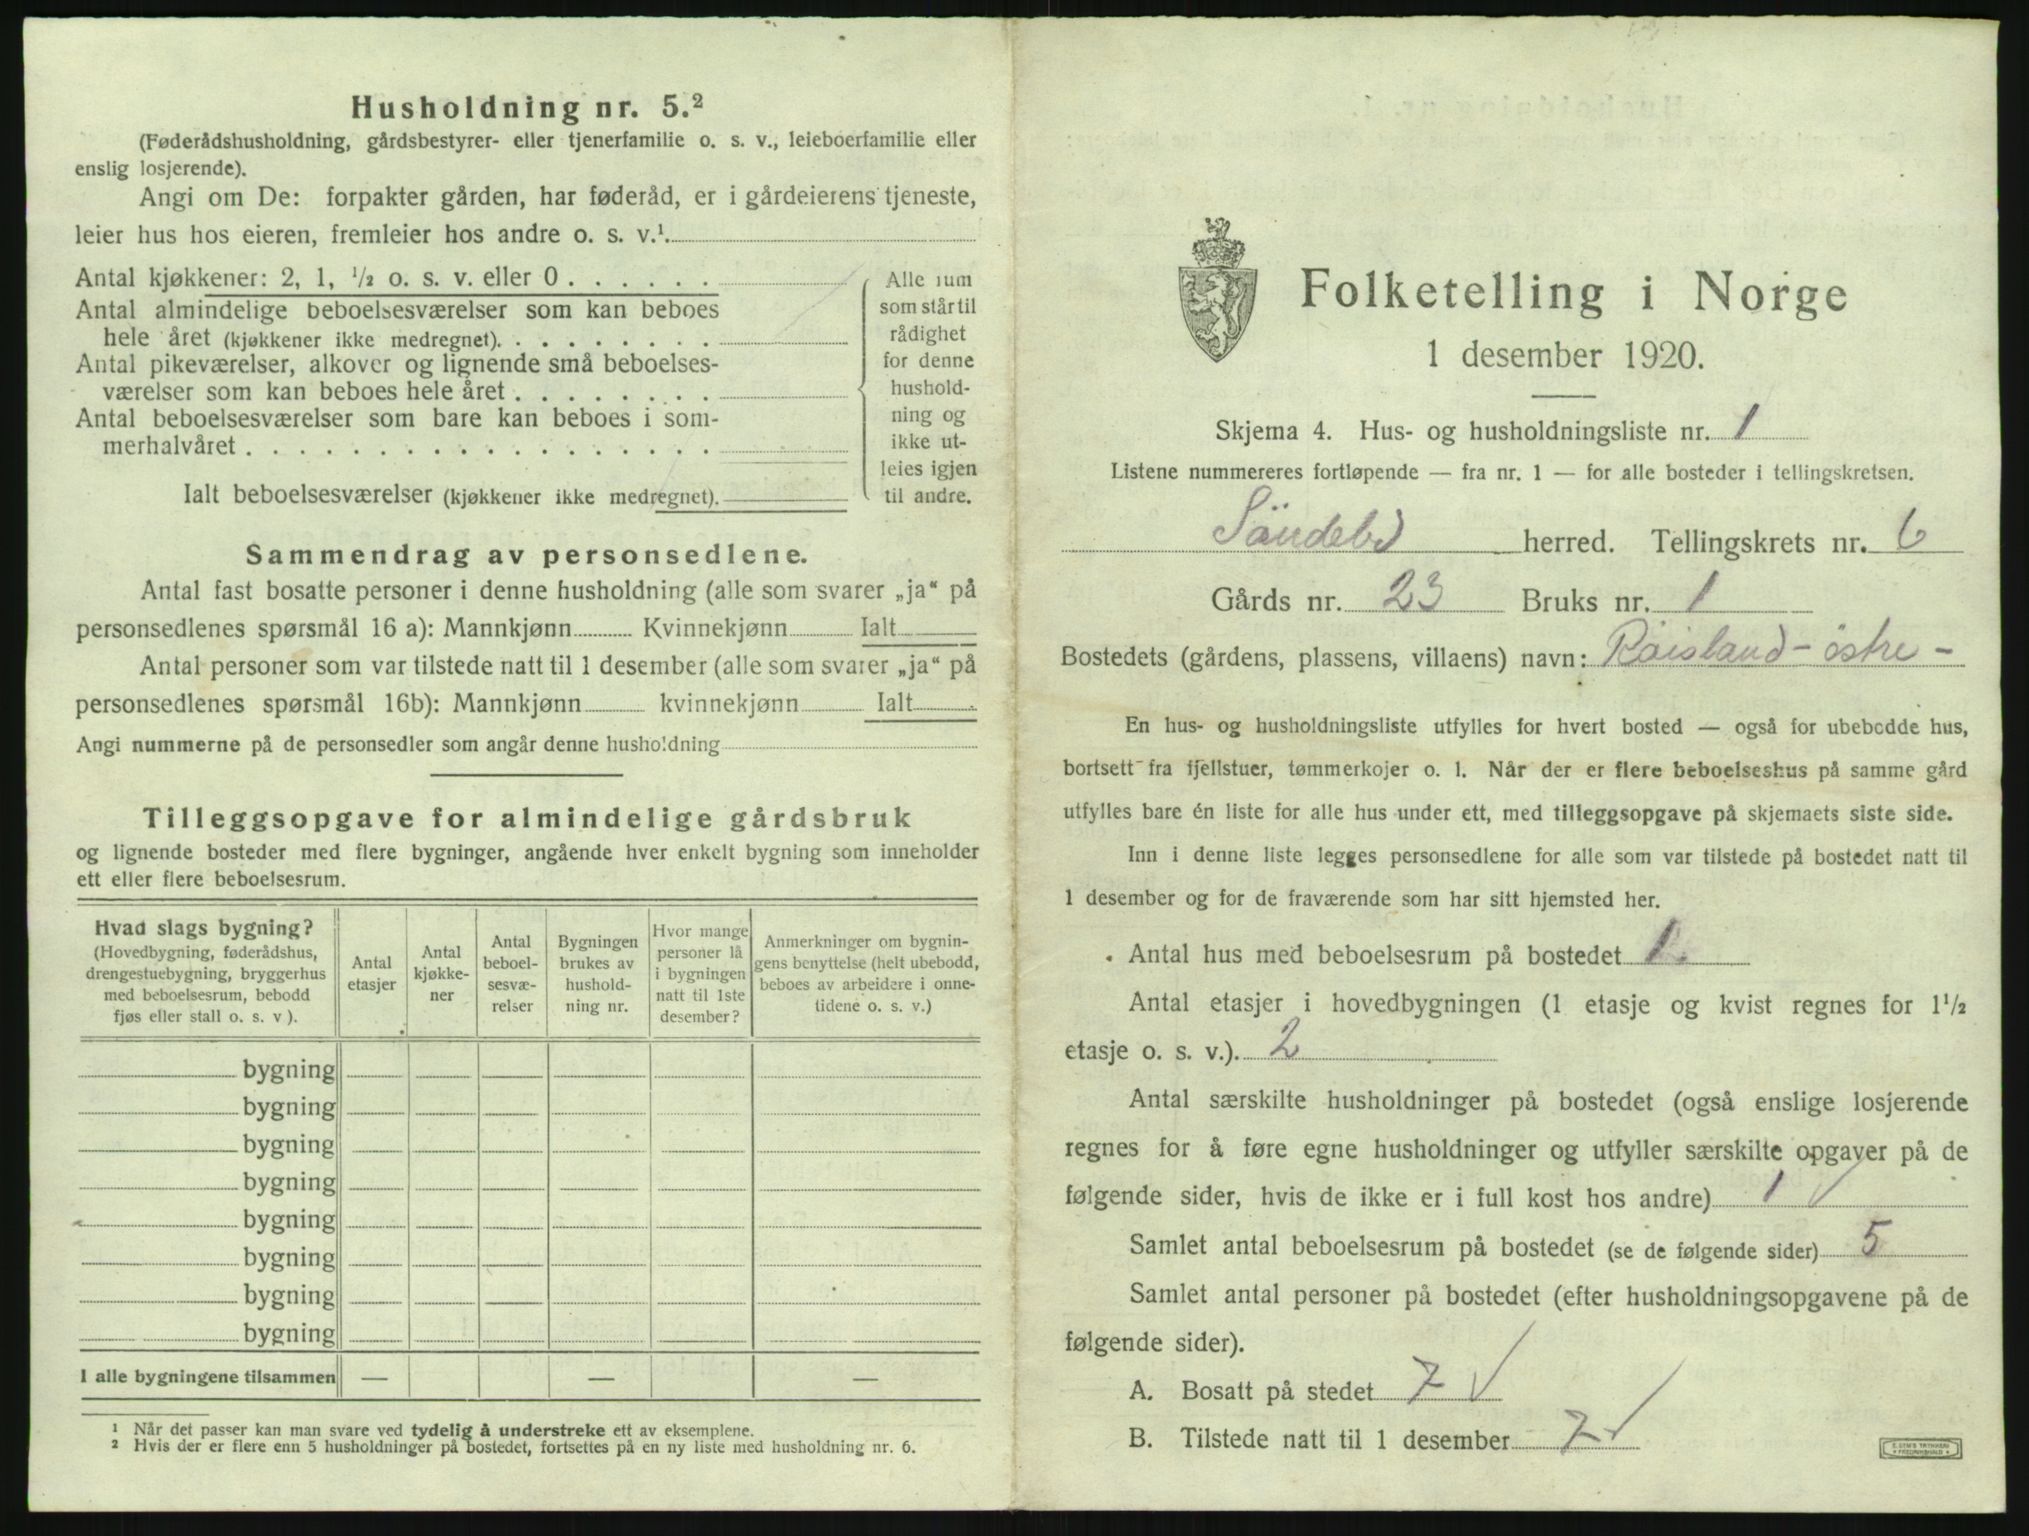 Husholdning nr. 5.²
(Føderådshusholdning, gårdsbestyrer- eller tjenerfamilie o. s. v., leieboerfamilie eller
enslig losjerende).
Angi om De: forpakter gården, har føderåd, er i gårdeierens tjeneste,
leier hus hos eieren, fremleier hos andre o. s. v.¹
Antal kjøkkener: 2, 1, ¹/₂ o. s. v. eller 0 . . . . . .
Antal almindelige beboelsesværelser som kan beboes
hele året (kjøkkener ikke medregnet). . . . . . . . .
Antal pikeværelser, alkover og lignende små beboelses-
værelser som kan beboes hele året . . . . . . . .
Antal beboelsesværelser som bare kan beboes i som-
merhalvåret . . . . . . . . . . . . . . . . . .
Ialt beboelsesværelser (kjøkkener ikke medregnet).
Alle rum
som står til
rådighet
for denne
hushold-
ning og
ikke ut-
leies igjen
til andre.
Sammendrag av personsedlene.
Antal fast bosatte personer i denne husholdning (alle som svarer „ja“ på
personsedlenes spørsmål 16 a): Mannkjønn Kvinnekjønn Ialt
Antal personer som var tilstede natt til 1 desember (alle som svarer „ja“ på
personsedlenes spørsmål 16b): Mannkjønn kvinnekjønn Ialt
Angi nummerne på de personsedler som angår denne husholdning
Tilleggsopgave for almindelige gårdsbruk
og lignende bosteder med flere bygninger, angående hver enkelt bygning som inneholder
ett eller flere beboelsesrum.
Hvad slags bygning?
(Hovedbygning, føderådshus,
drengestuebygning, bryggerhus
med beboelsesrum, bebodd
fjøs eller stall o. s. v ).
Antal
etasjer
Antal
kjøkke-
ner
Antal
beboel-
sesvæ-
relser
Bygningen
brukes av
hushold-
ning nr.
Hvor mange
personer lå
i bygningen
natt til 1ste
desember?
Anmerkninger om bygnin-
gens benyttelse (helt ubebodd,
beboes av arbeidere i onne-
tidene o. s. v.)
bygning
bygning
bygning
bygning
bygning
bygning
bygning
bygning
I alle bygningene tilsammen — — —
¹ Når det passer kan man svare ved tydelig å understreke ett av eksemplene.
² Hvis der er flere enn 5 husholdninger på bostedet, fortsettes på en ny liste med husholdning nr. 6.
Folketelling i Norge
1 desember 1920.
Skjema 4. Hus- og husholdningsliste nr. 1
Listene nummereres fortløpende — fra nr. 1 — for alle bosteder i tellingskretsen.
Söndeled herred. Tellingskrets nr. 6
Gårds nr. 23 Bruks nr. 1
Bostedets (gårdens, plassens, villaens) navn: Röisland - östre -
En hus- og husholdningsliste utfylles for hvert bosted — også for ubebodde hus,
bortsett fra fjellstuer, tømmerkojer o. l. Når der er flere beboelseshus på samme gård
utfylles bare én liste for alle hus under ett, med tilleggsopgave på skjemaets siste side.
Inn i denne liste legges personsedlene for alle som var tilstede på bostedet natt til
1 desember og for de fraværende som har sitt hjemsted her.
Antal hus med beboelsesrum på bostedet 1.
Antal etasjer i hovedbygningen (1 etasje og kvist regnes for 1¹/₂
etasje o. s. v.). 2
Antal særskilte husholdninger på bostedet (også enslige losjerende
regnes for å føre egne husholdninger og utfyller særskilte opgaver på de
følgende sider, hvis de ikke er i full kost hos andre) 1 √
Samlet antal beboelsesrum på bostedet (se de følgende sider) 5
Samlet antal personer på bostedet (efter husholdningsopgavene på de
følgende sider).
A. Bosatt på stedet 7 √
B. Tilstede natt til 1 desember 7 √